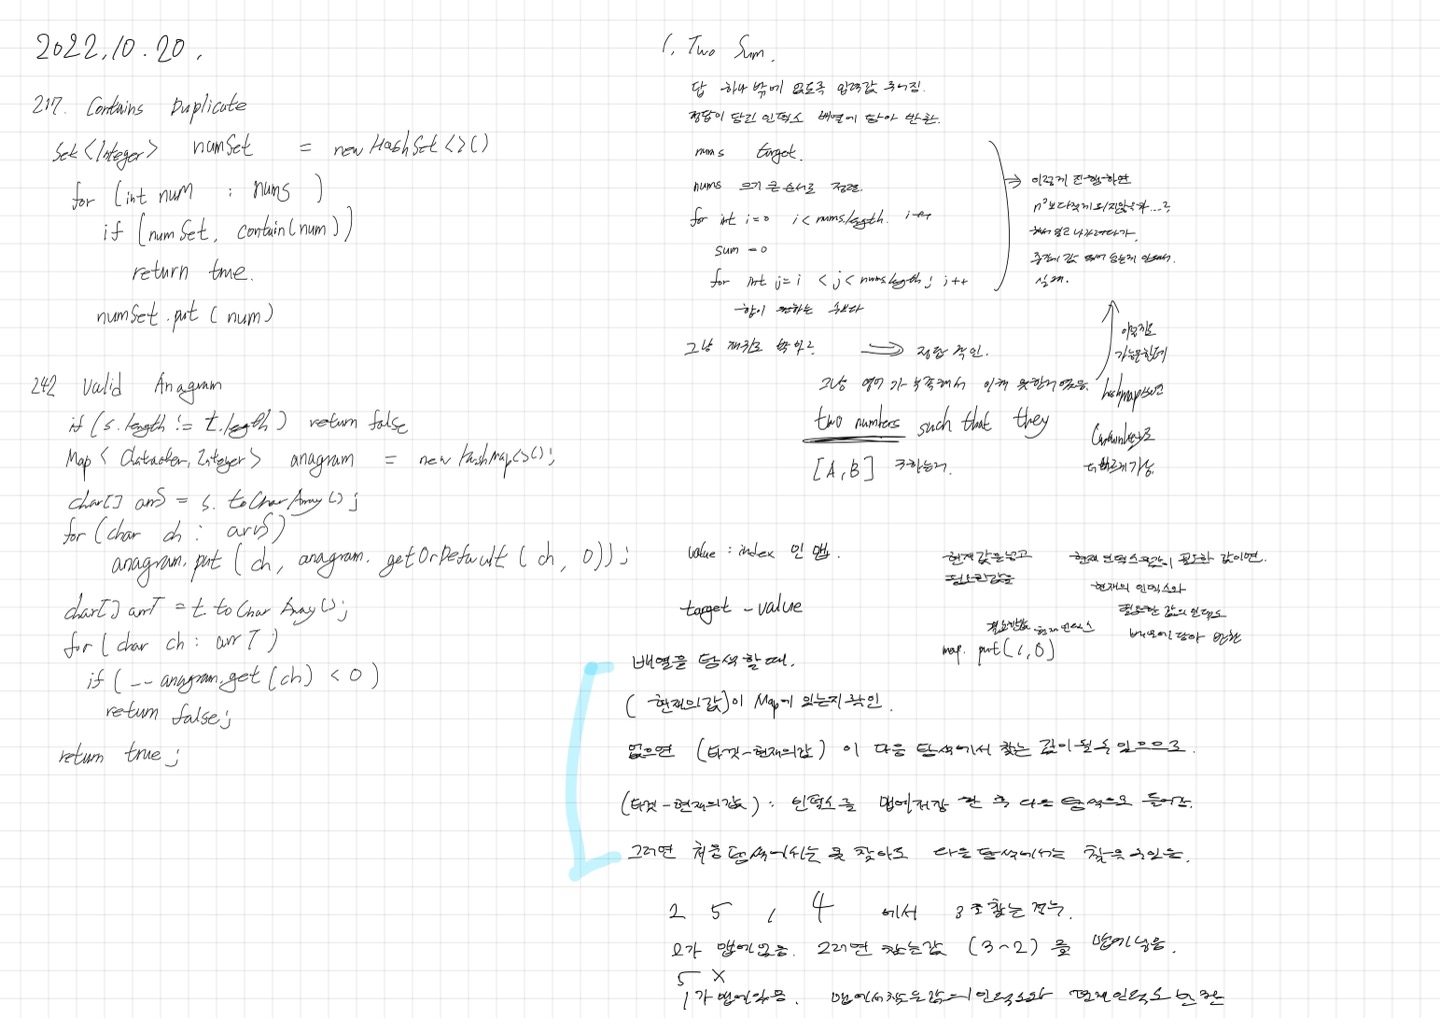 2022.10.20.
217. Contains Duplicate
Set<Integer> numSet = new HashSet<>()
for (int num : nums )
if (numSet, contain(num))
return true.
numSet.put (num)
242 Valid Anagram
if (s.length != t.length) return false
Map < Character, Integer> anagram = new HashMap<>();
char[] arrS = s. toCharArray();
for (char ch : arrS)
anagram. put (ch, anagram. getOrDefault (ch, 0));
char[] arrT = t. toCharArray();
for (char ch : arrT)
if (--anagram.get(ch) < 0)
return false;
return true;
1. Two Sum.
답 하나 밖에 없도록 입력값 주어짐.
정답이 담긴 인덱스 배열에 담아 반환.
nums target.
nums 크기 큰 순서로 정렬
for int i=0 i<nums.length. i++
sum = 0
for int j=i < j<nums.length; j++
합이 원하는 숫자다
이렇게 진행하면
n²보다 적게
중간에 값
그냥 박아? ⇒ 정답 확인.
그냥 영어가 부족해서 이해 못한거였음.
two numbers such that they
[A,B] 구하는거.
이렇게도
가능은한데
hashmap쓰면
containkey로
더빠르게가능
value : index 인 맵.
target - value
현재값을넣고
필요한값을
현재 인덱스의값이 필요한 값이면.
현재의 인덱스와
필요한 값의 인덱스
배열에 담아 반환
필요한값 현재인덱스
map. put(1,0)
배열을 탐색할때.
(현재의값)이 Map에 있는지확인.
없으면 (타겟-현재의값) 이 다음 탐색에서 찾는 값이될수있으므로.
(타겟-현재의값) : 인덱스를 맵에저장 한 후 다음 탐색으로 들어감.
그러면 처음탐색에서는 못 찾아도 다음탐색에서는 찾을수있음.
2 5 1 4 에서 3을 찾는경우.
2가 맵에없음. 그러면 찾는값 (3-2) 를 맵에넣음.
5 X
1가 맵에있음. 맵에서찾은값의인덱스와 현재인덱스 반환